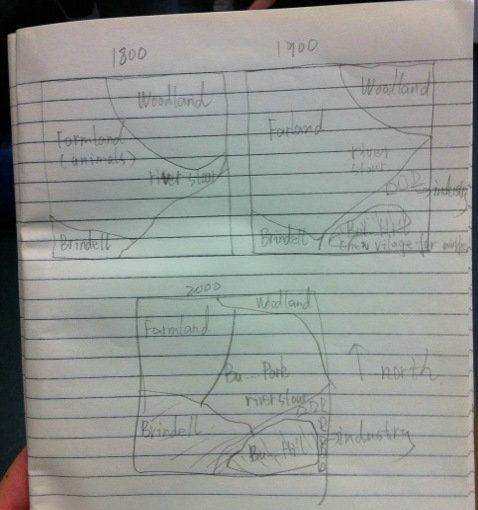 1800
Woodland
Farmland
(animals)
river stour
Brindell
1900
Woodland
Farland
river
stour
industry
Brindell
But Hill
(new village for worker
2000
Woodland
Farmland
Bu... Park
river stour
Brindell
Bu... Hill
industry
north